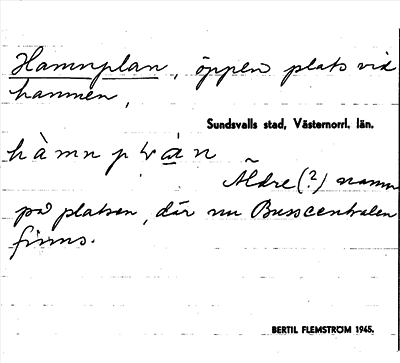 Hamnplan, öppen plats vid
hamnen,
Sundsvalls stad, Västernorrl. län.
hàmnplàn
Äldre(?) namn
på platsen, där nu Busscentralen
finns.
BERTIL FLEMSTRÖM 1965.